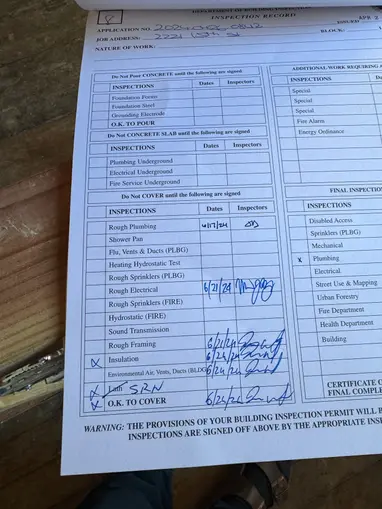 DEPARTMENT OF BUILDING INSPECTION
INSPECTION RECORD
8
APPLICATION NO.
ISSUED APR 2
JOB ADDRESS: 2221
BLOCK:
NATURE OF WORK:
Do Not Pour CONCRETE until the following are signed
INSPECTIONS Dates Inspectors
Foundation Forms
Foundation Steel
Grounding Electrode
O.K. TO POUR
Do Not CONCRETE SLAB until the following are signed
INSPECTIONS Dates Inspectors
Plumbing Underground
Electrical Underground
Fire Service Underground
Do Not COVER until the following are signed
INSPECTIONS Dates Inspectors
Rough Plumbing 6/17/24
Shower Pan
Flu, Vents & Ducts (PLBG)
Heating Hydrostatic Test
Rough Sprinklers (PLBG)
Rough Electrical 6/21/24
Rough Sprinklers (FIRE)
Hydrostatic (FIRE)
Sound Transmission
Rough Framing 6/21/24
X Insulation 6/26/24
Environmental Air, Vents, Ducts (BLDG) 6/24/24
X Lath SRN
X O.K. TO COVER 6/26/24
ADDITIONAL WORK REQUIRING
INSPECTIONS Dates
Special
Special
Special
Fire Alarm
Energy Ordinance
FINAL INSPECTION
INSPECTIONS
Disabled Access
Sprinklers (PLBG)
Mechanical
X Plumbing
Electrical
Street Use & Mapping
Urban Forestry
Fire Department
Health Department
Building
CERTIFICATE
FINAL COMPLE
WARNING: THE PROVISIONS OF YOUR BUILDING INSPECTION PERMIT WILL B
INSPECTIONS ARE SIGNED OFF ABOVE BY THE APPROPRIATE INSP